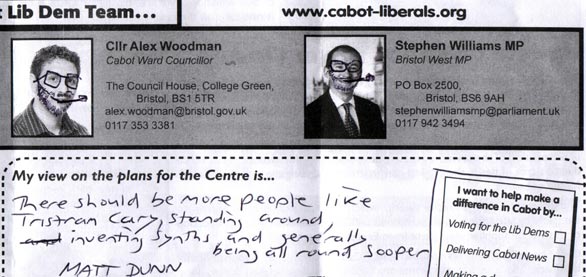 t Lib Dem Team...
www.cabot-liberals.org
Cllr Alex Woodman
Cabot Ward Councillor
The Council House, College Green,
Bristol, BS1 5TR
alex.woodman@bristol.gov.uk
0117 353 3381
Stephen Williams MP
Bristol West MP
PO Box 2500,
Bristol, BS6 9AH
stephenwilliamsmp@parliament.uk
0117 942 3494
My view on the plans for the Centre is...
There should be more people like
Tristran Cary, standing around,
inventing synths and generally
being all round sooper
MATT DUNN
I want to help make a
difference in Cabot by...
Voting for the Lib Dems
Delivering Cabot News